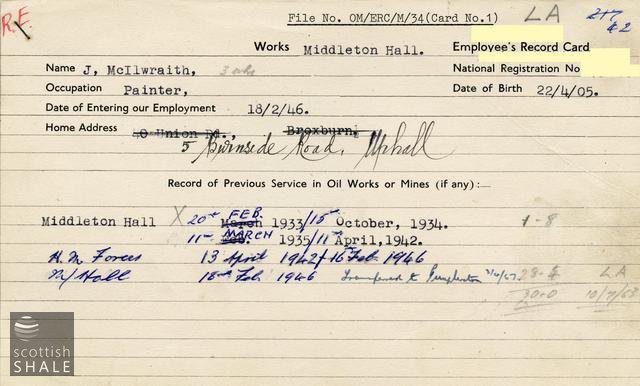 R.E.
File No. OM/ERC/M/34(Card No.1) LA
Works Middleton Hall. Employee's Record Card
Name J, McIlwraith, National Registration No
Occupation Painter, Date of Birth 22/4/05.
Date of Entering our Employment 18/2/46.
Home Address Union Rd., Broxburn.
5 Burnside Road, Uphall
Record of Previous Service in Oil Works or Mines (if any):—
Middleton Hall X 20th FEB. March 1933/15th October, 1934. 1-8
11th MARCH Feb. 1935/11th April, 1942.
H.M. Forces 13 April 1942/16 Feb. 1946
M/Hall 18th Feb 1946 Transferred to Pumpherston 28-4 LA
30-0 10/7/63
scottish
SHALE